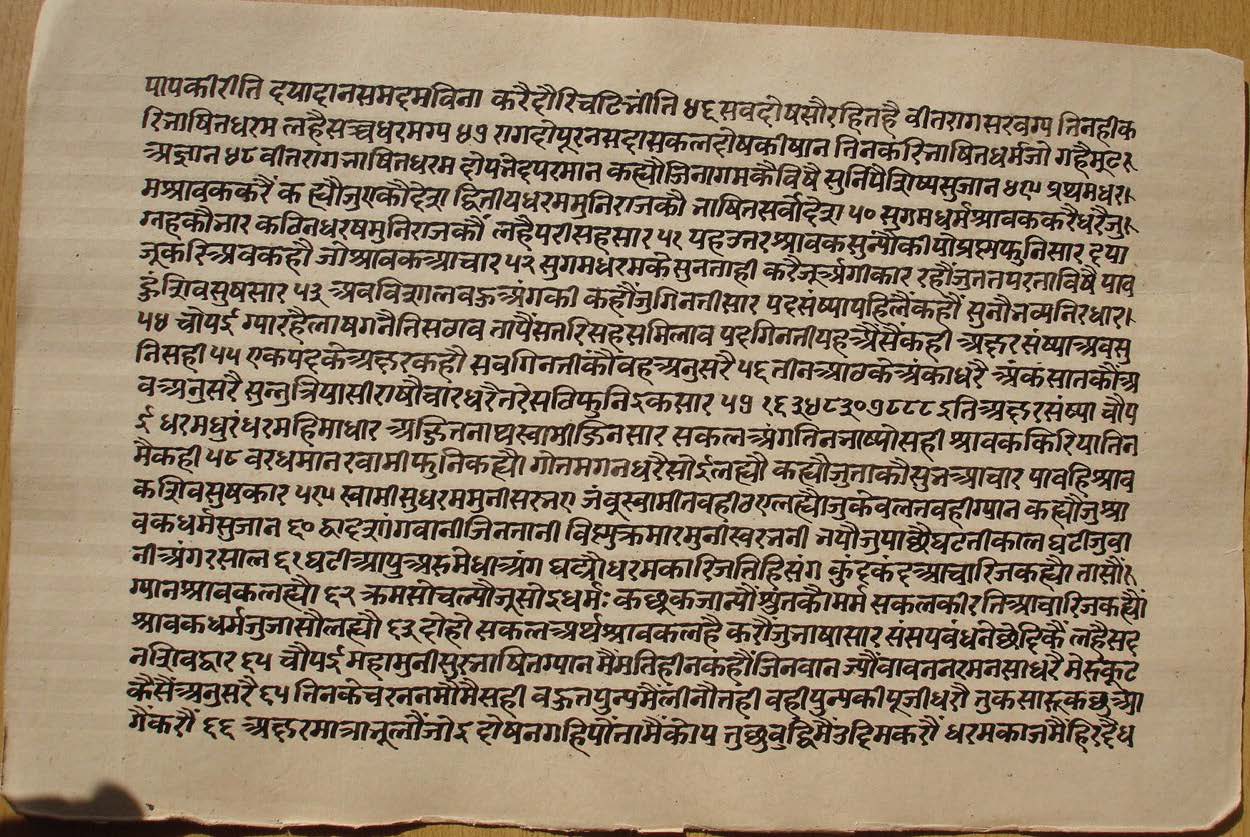 पापकीरीति दयादानसमदमविना करैदौरिचटिनीति ४६ सवदोषसौरहितहै वीतरागसरवग्य तिनहीक
रिभाषितधरम लहैसच्चधरमग्य ४७ रागदोपूरनसदासकलदोषकीषान तिनकरिभाषितधर्मजो गहैमूट
अज्ञान ४८ वीतरागभाषितधरम दोपभेदपरमान कह्यौजिनागमकैविषै सुनियैशिष्यसुजान ४९ प्रथमधर
मश्रावककरैं कह्यौजुएकौदेश द्वितीयधरममुनिराजकौ भाषितसर्वोदेश ५० सुगमधर्मश्रावककरैधरैजु
ग्नहकौभार कठिनधरषमुनिराजकौं लहैपरीसहसार ५१ यहउतरश्रावकसुन्यौकीयोप्रस्नफुनिसार दया
जूकरिअवकहौ जोश्रावकआचार ५२ सुगमधरमकेसुनताही करैजूअंगीकार रहौजुततपरताविषै पाव
हुंशिवसुषसार ५३ अवविशालवहुअंगकी कहौंजुगिनतीसार पदसंष्यापहिलैकहौं सुनौभव्यनिरधार
५४ चौपई ग्यारहैलाषगनैनिसठाव तापैंसतरिसहसमिलाव पदगिनतीयहअैंसैंकही अक्षरसंष्याअवसु
निसही ५५ एकपदकेअक्षरकहौ सवगिनतीकौंवहअनुसरै ५६ तीनआठकेअंकाधरै अंकसातकौंअ
वअनुसरै सुन्नुत्रियासीराषौचारधरैतरेसठिफुनिइकसार ५७ १६३४८३०७८८८ इतिअक्षरसंष्या चौप
ई धरमधुरंधरमहिमाधार अजितनाथस्वामीजिनसार सकलअंगतिनभाष्योसही श्रावककिरियातिन
मैकही ५८ वरधमानस्वामीफुनिकह्यौ गोतमगनधरैसोईलह्यौ कह्यौजुताकौसुभआचार पावहिश्राव
कशिवसुषकार ५९ स्वामीसुधरममुनीसरभए जंवुस्वामीतवहीठएलह्यौजुकेवलतवहीग्यान कह्यौजुश्रा
वकधर्मसुजान ६० द्वादशांगवानीजिनभानी विष्णुकुमारमुनीस्वरभनी भयौजुपाछैघटतीकाल घटीजुवा
नीअंगरसाल ६१ घटीआयुअरुमेधाअंग घट्यौधरमकारिजतिहिसंग कुंदकुदआचारिजकह्यौ तासौ
ग्यानश्रावकलह्यौ ६२ क्रमसोचल्यौजूसोइधर्मः कछुकजान्यौश्रुतकौमर्म सकलकीरतिआचारिजकह्यौं
श्रावकधर्मजुजासौलह्यौ ६३ दोहो सकलअर्थश्रावकलहै करौंजुभाषासार संसयवंधनछेदिकैं लहैसद
नशिवद्वार ६४ चौपई महामुनीसुरभाषितग्यान मैंमतिहीनकहौंजिनवान ज्यौवावननरमनसाधरै मेरुकूट
कैसैंअनुसरै ६५ तिनकेचरननमौमैसही वहुतपुन्यमैंलीनौतही वहीपुन्यकीपूजीधरौ तुकसारूकछुअा
गैंकरौं ६६ अक्षरमात्राभूलौंजोइ दोषनगहियौंतामैंकोय तुछवुद्धिमैंउदिमकरौं धरमकाजमैंहिरदैध